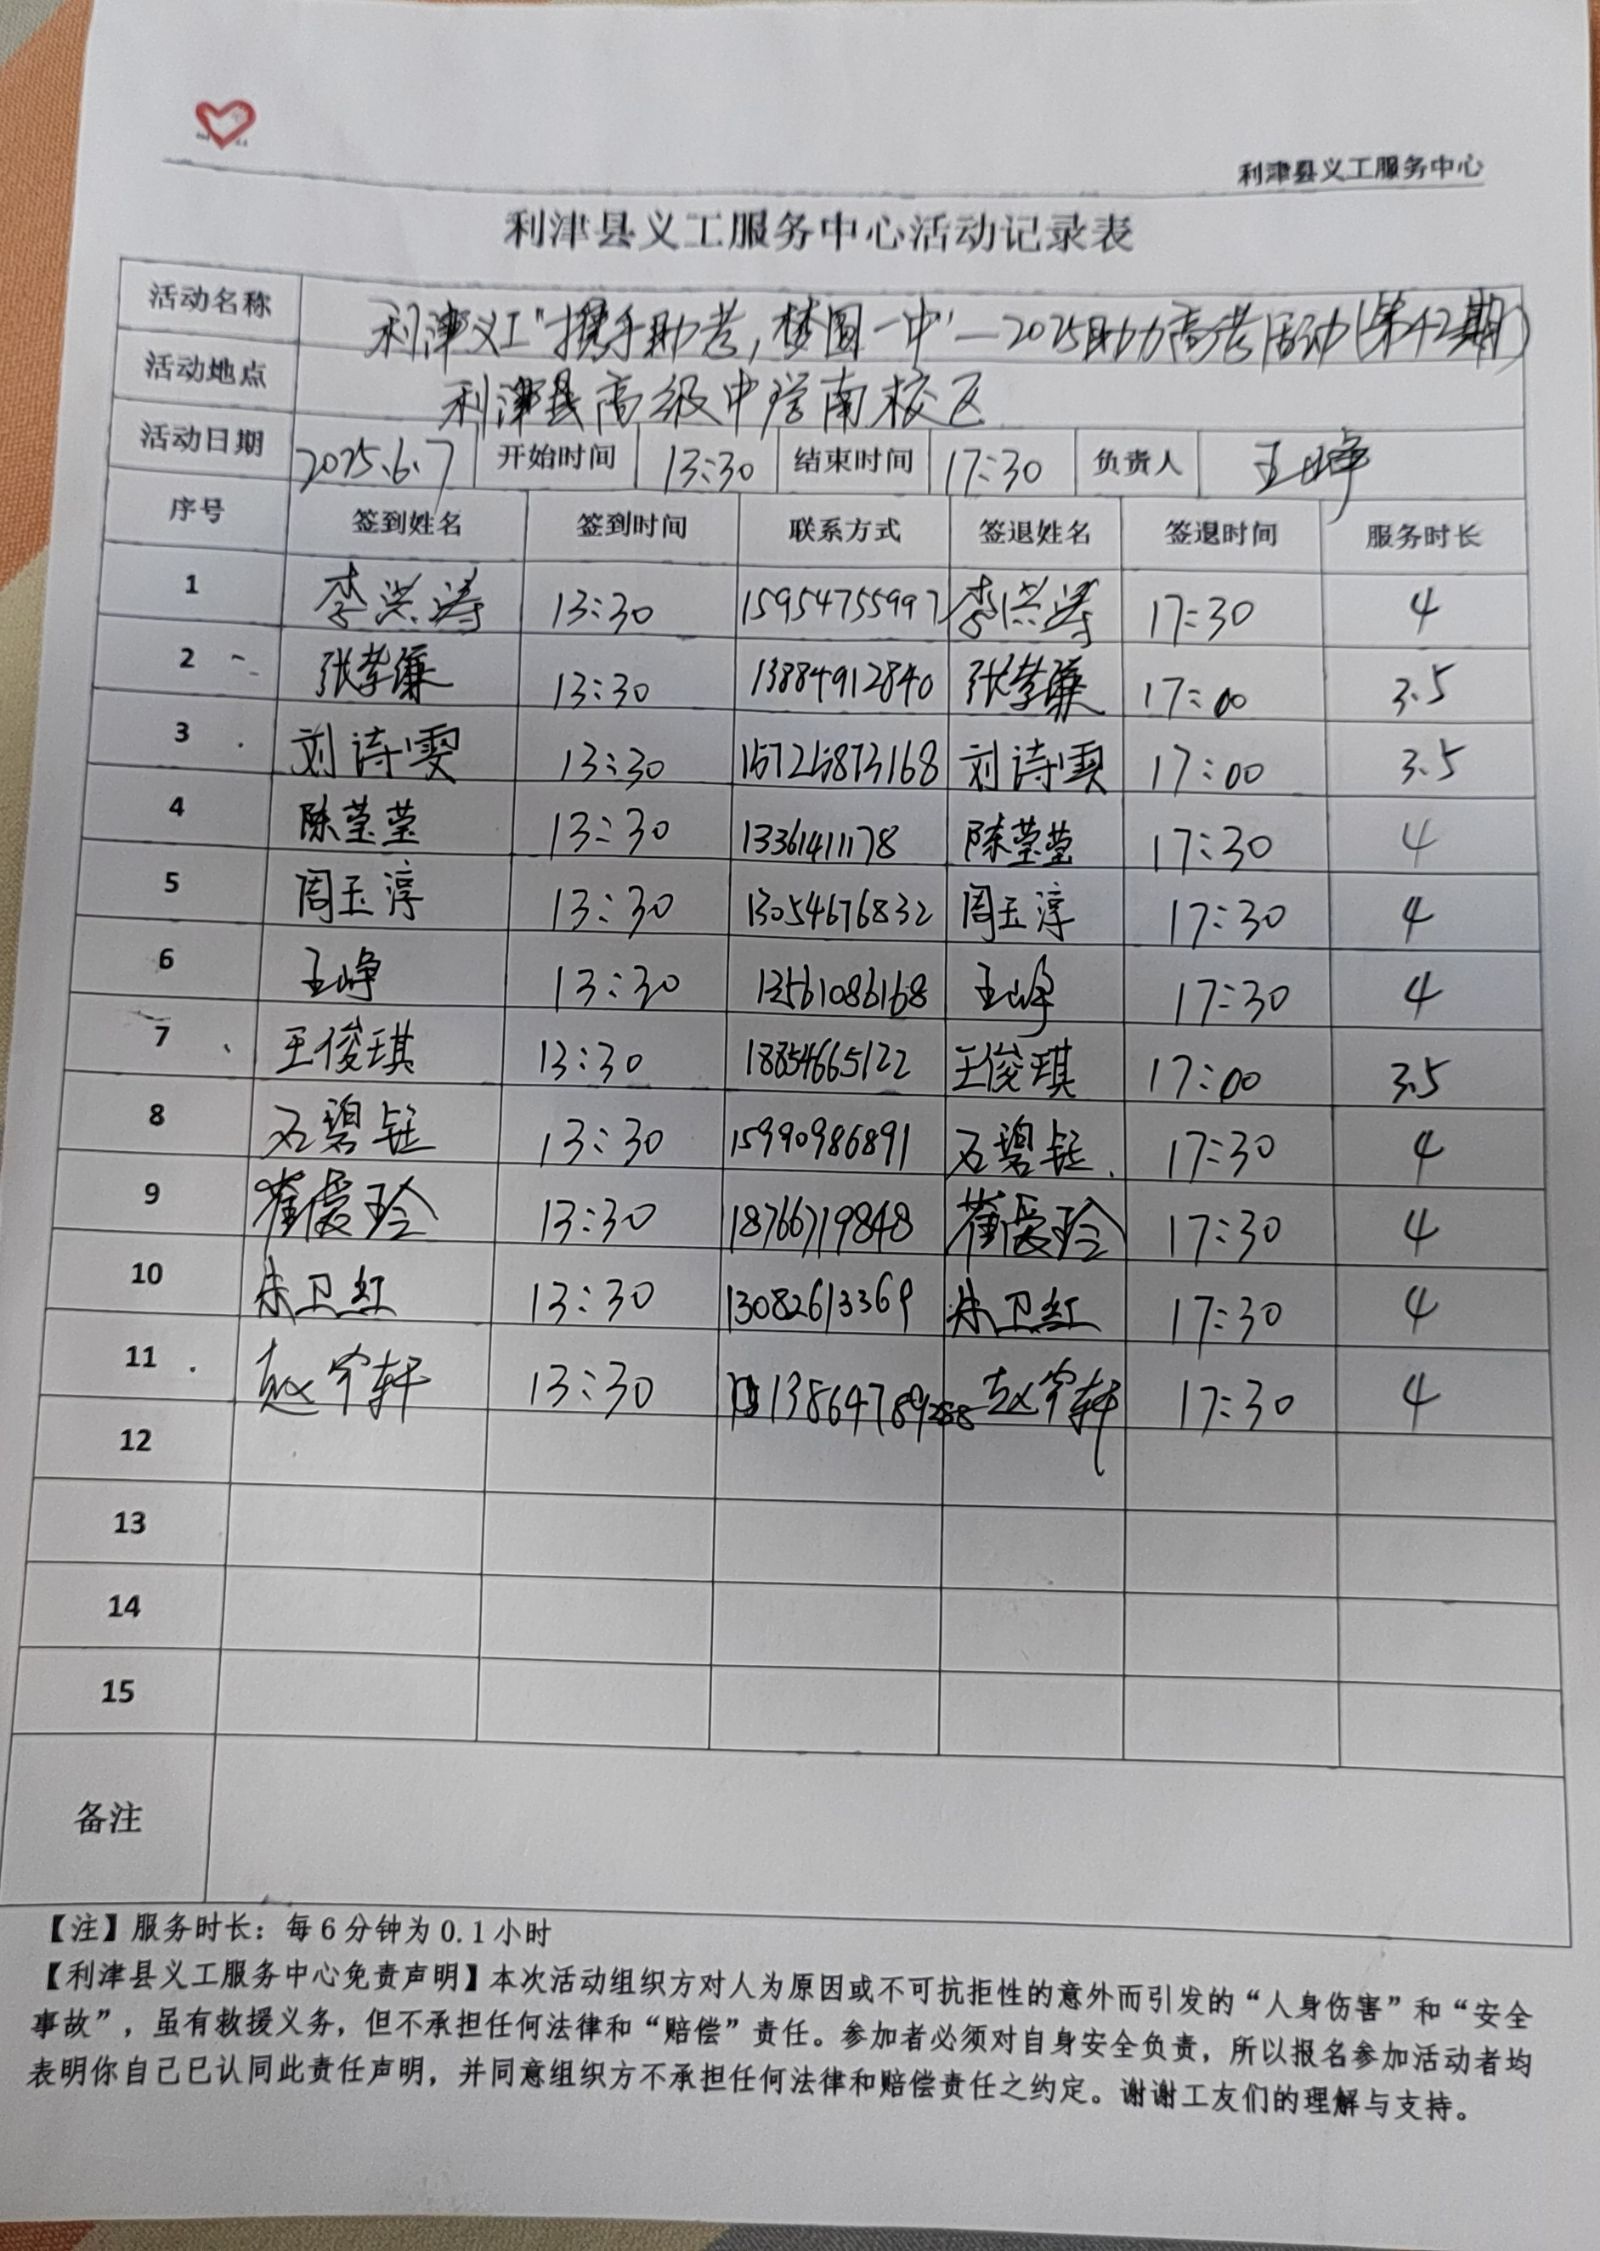 利津县义工服务中心
利津县义工服务中心活动记录表
活动名称 利津义工"携手助考，梦圆一中"—2025助力高考活动(第42期)
活动地点 利津县高级中学南校区
活动日期 2025.6.7 开始时间 13:30 结束时间 17:30 负责人 王峥
序号 签到姓名 签到时间 联系方式 签退姓名 签退时间 服务时长
1 李洪涛 13:30 15954755997 李洪涛 17:30 4
2 张孝谦 13:30 13884912840 张孝谦 17:00 3.5
3 刘诗雯 13:30 刘诗雯 17:00 3.5
4 陈莹莹 13:30 13361411178 陈莹莹 17:30 4
5 周玉淳 13:30 13054676832 周玉淳 17:30 4
6 王峥 13:30 13561086168 王峥 17:30 4
7 王俊琪 13:30 18854665122 王俊琪 17:00 3.5
8 石碧钰 13:30 15990986891 石碧钰 17:30 4
9 崔爱玲 13:30 18766719848 崔爱玲 17:30 4
10 朱卫红 13:30 13082613369 朱卫红 17:30 4
11 赵宇轩 13:30 赵宇轩 17:30 4
12
13
14
15
备注
【注】服务时长：每6分钟为0.1小时
【利津县义工服务中心免责声明】本次活动组织方对人为原因或不可抗拒性的意外而引发的“人身伤害”和“安全
事故”，虽有救援义务，但不承担任何法律和“赔偿”责任。参加者必须对自身安全负责，所以报名参加活动者均
表明你自己已认同此责任声明，并同意组织方不承担任何法律和赔偿责任之约定。谢谢工友们的理解与支持。